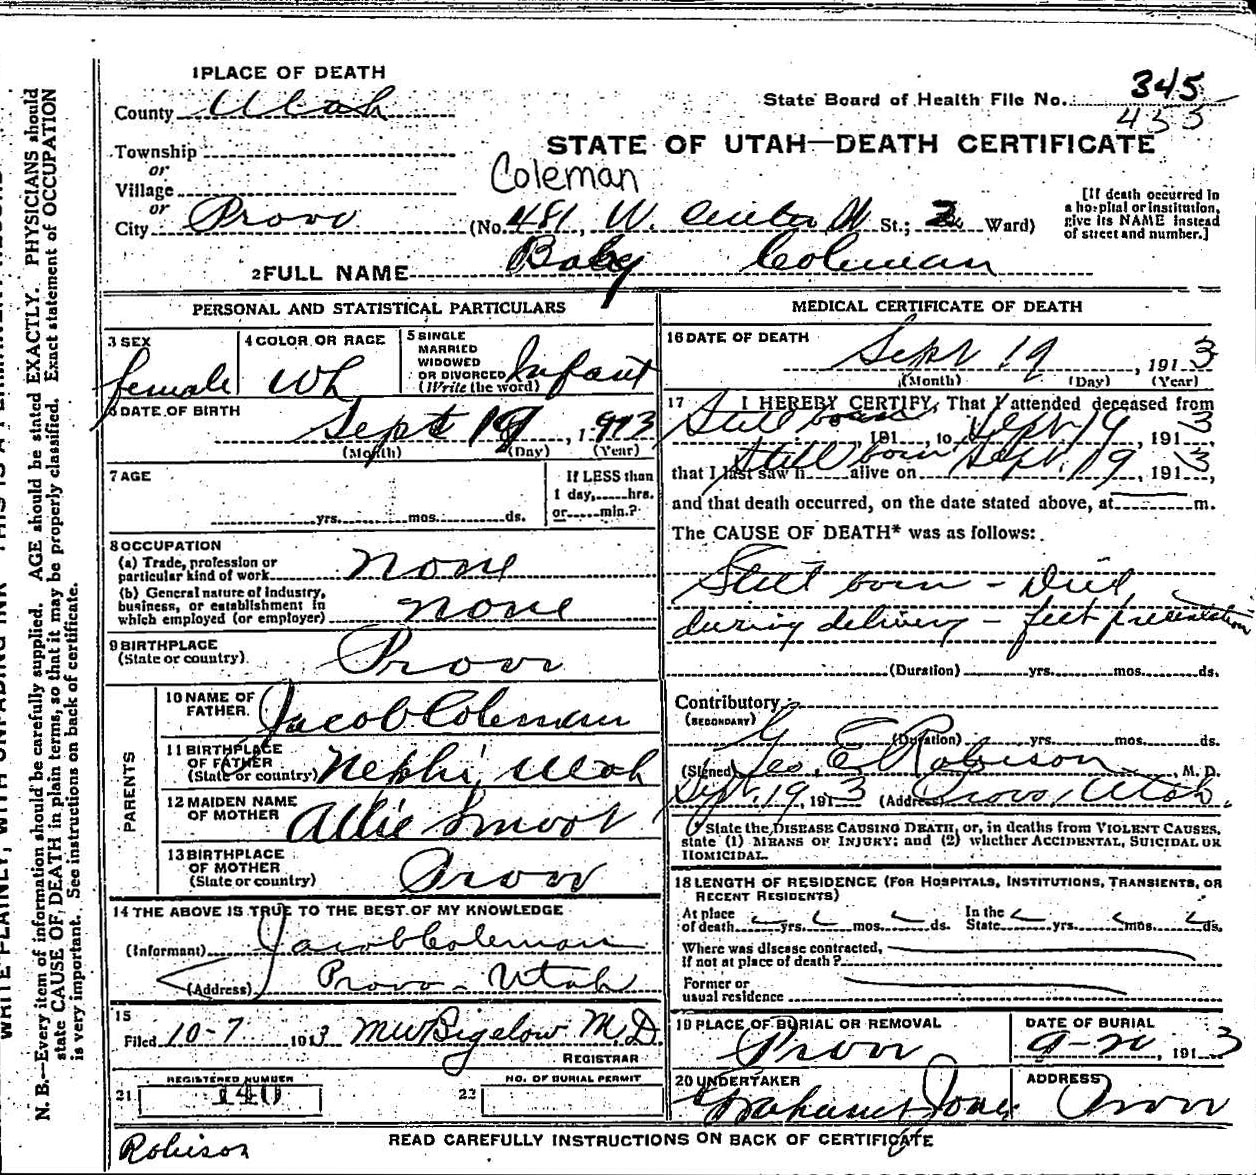 1 PLACE OF DEATH
County Utah
State Board of Health File No. 345
433
Township
or
Village
or
City Provo
STATE OF UTAH—DEATH CERTIFICATE
Coleman
(No. 481, W. Center St St.; 2 Ward)
[If death occurred in
a hospital or institution,
give its NAME instead
of street and number.]
2 FULL NAME Baby Coleman
PERSONAL AND STATISTICAL PARTICULARS
3 SEX
female
4 COLOR OR RACE
Wh
5 SINGLE
MARRIED
WIDOWED
OR DIVORCED
(Write the word)
Infant
6 DATE OF BIRTH
Sept 19, 1913
(Month) (Day) (Year)
7 AGE
yrs. mos. ds.
If LESS than
1 day, hrs.
or min.?
8 OCCUPATION
(a) Trade, profession or
particular kind of work none
(b) General nature of industry,
business, or establishment in
which employed (or employer) none
9 BIRTHPLACE
(State or country) Provo
PARENTS
10 NAME OF
FATHER Jacob Coleman
11 BIRTHPLACE
OF FATHER
(State or country) Nephi, Utah
12 MAIDEN NAME
OF MOTHER Allie Smoot
13 BIRTHPLACE
OF MOTHER
(State or country) Provo
14 THE ABOVE IS TRUE TO THE BEST OF MY KNOWLEDGE
(Informant) Jacob Coleman
(Address) Provo - Utah
15
Filed 10-7 1913 MW Bigelow M D
REGISTRAR
REGISTERED NUMBER
21 140
NO. OF BURIAL PERMIT
22
MEDICAL CERTIFICATE OF DEATH
16 DATE OF DEATH
Sept 19, 1913
(Month) (Day) (Year)
17 I HEREBY CERTIFY, That I attended deceased from
Still born, 191, to Sept. 19, 1913,
that I last saw h still born alive on Sept. 19, 1913,
and that death occurred, on the date stated above, at m.
The CAUSE OF DEATH* was as follows:
Still born - Died
during delivery - feet presentation
(Duration) yrs. mos. ds.
Contributory
(SECONDARY)
(Duration) yrs. mos. ds.
(Signed) Geo. E Robison, M. D.
Sept. 19, 1913 (Address) Provo, Utah.
* State the DISEASE CAUSING DEATH, or, in deaths from VIOLENT CAUSES,
state (1) MEANS OF INJURY; and (2) whether ACCIDENTAL, SUICIDAL OR
HOMICIDAL.
18 LENGTH OF RESIDENCE (FOR HOSPITALS, INSTITUTIONS, TRANSIENTS, OR
RECENT RESIDENTS)
At place
of death yrs. mos. ds.
In the
State yrs. mos. ds.
Where was disease contracted,
if not at place of death?
Former or
usual residence
19 PLACE OF BURIAL OR REMOVAL
Provo
DATE OF BURIAL
9-20, 1913
20 UNDERTAKER
Jones
ADDRESS
Provo
READ CAREFULLY INSTRUCTIONS ON BACK OF CERTIFICATE
Robison
N. B.—Every item of information should be carefully supplied. AGE should be stated EXACTLY. PHYSICIANS should
state CAUSE OF DEATH in plain terms, so that it may be properly classified. Exact statement of OCCUPATION
is very important. See instructions on back of certificate.